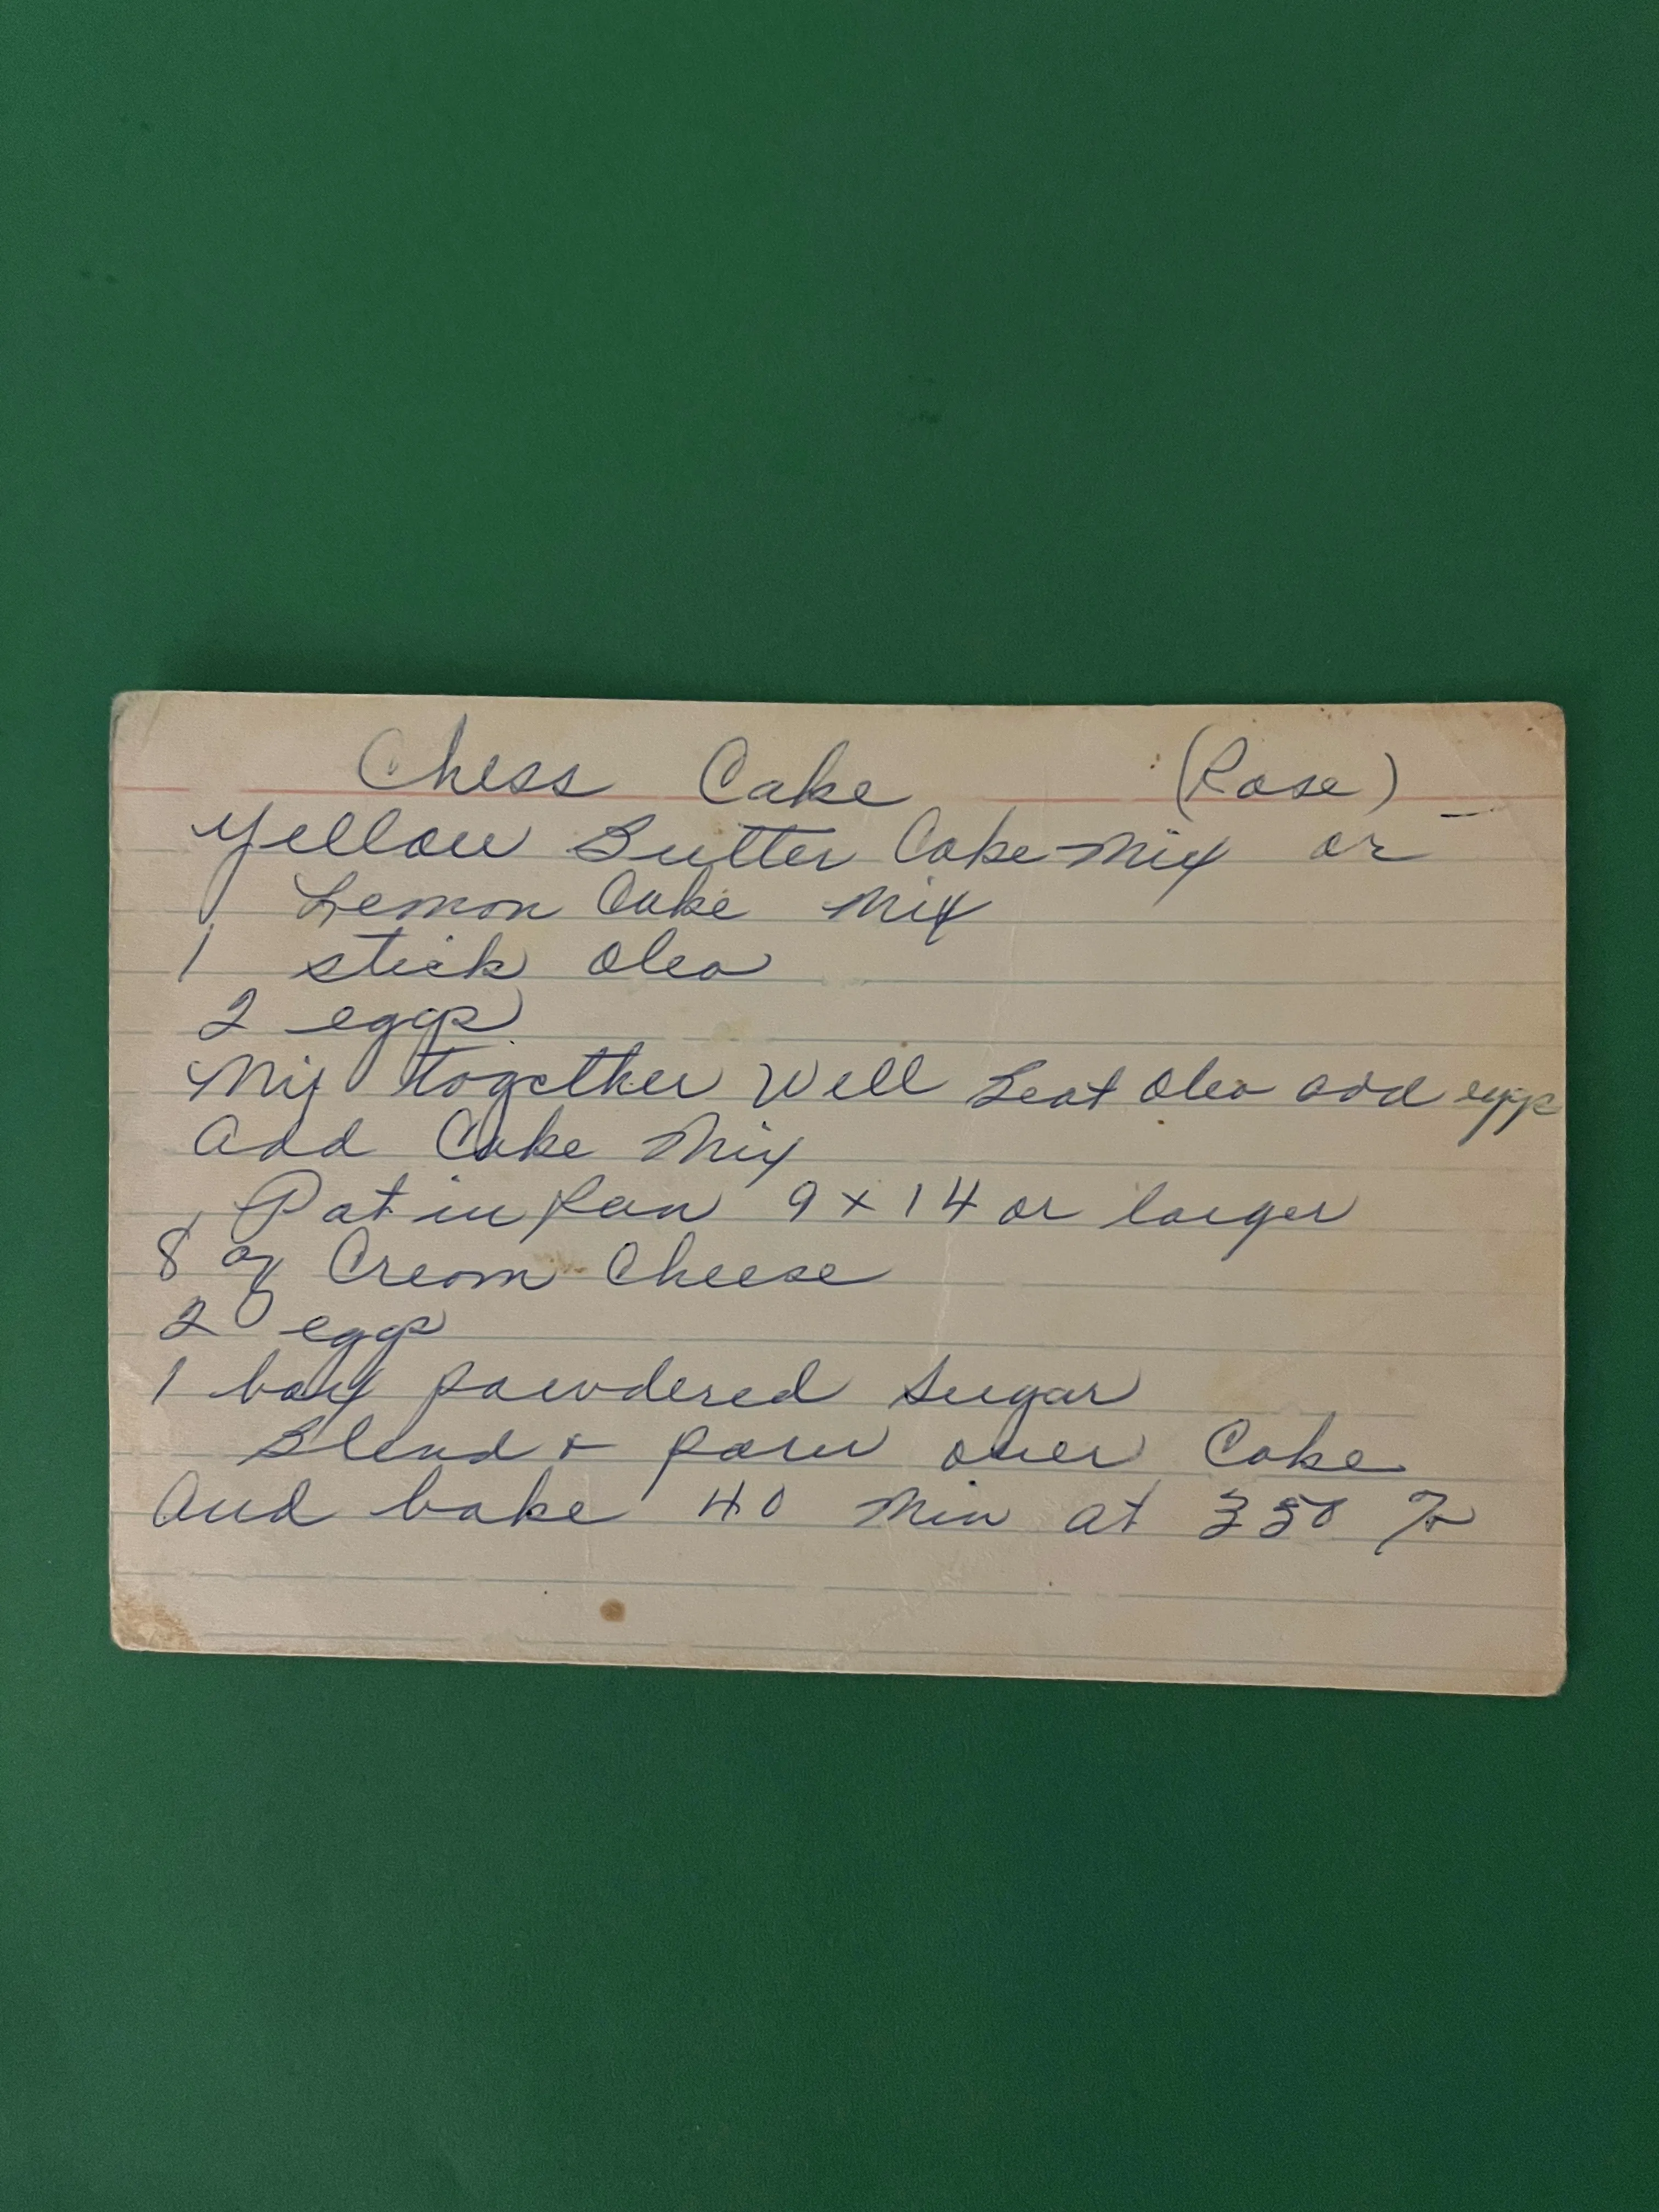 Chess Cake (Rose)
Yellow Butter Cake Mix or
Lemon Cake Mix
1 stick Oleo
2 eggs
Mix together Well Beat Oleo add eggs
Add Cake Mix
Pat in pan 9 x 14 or larger
8 oz Cream Cheese
2 eggs
1 box powdered Sugar
Blend + pour over Cake
And bake 40 Min at 350 F